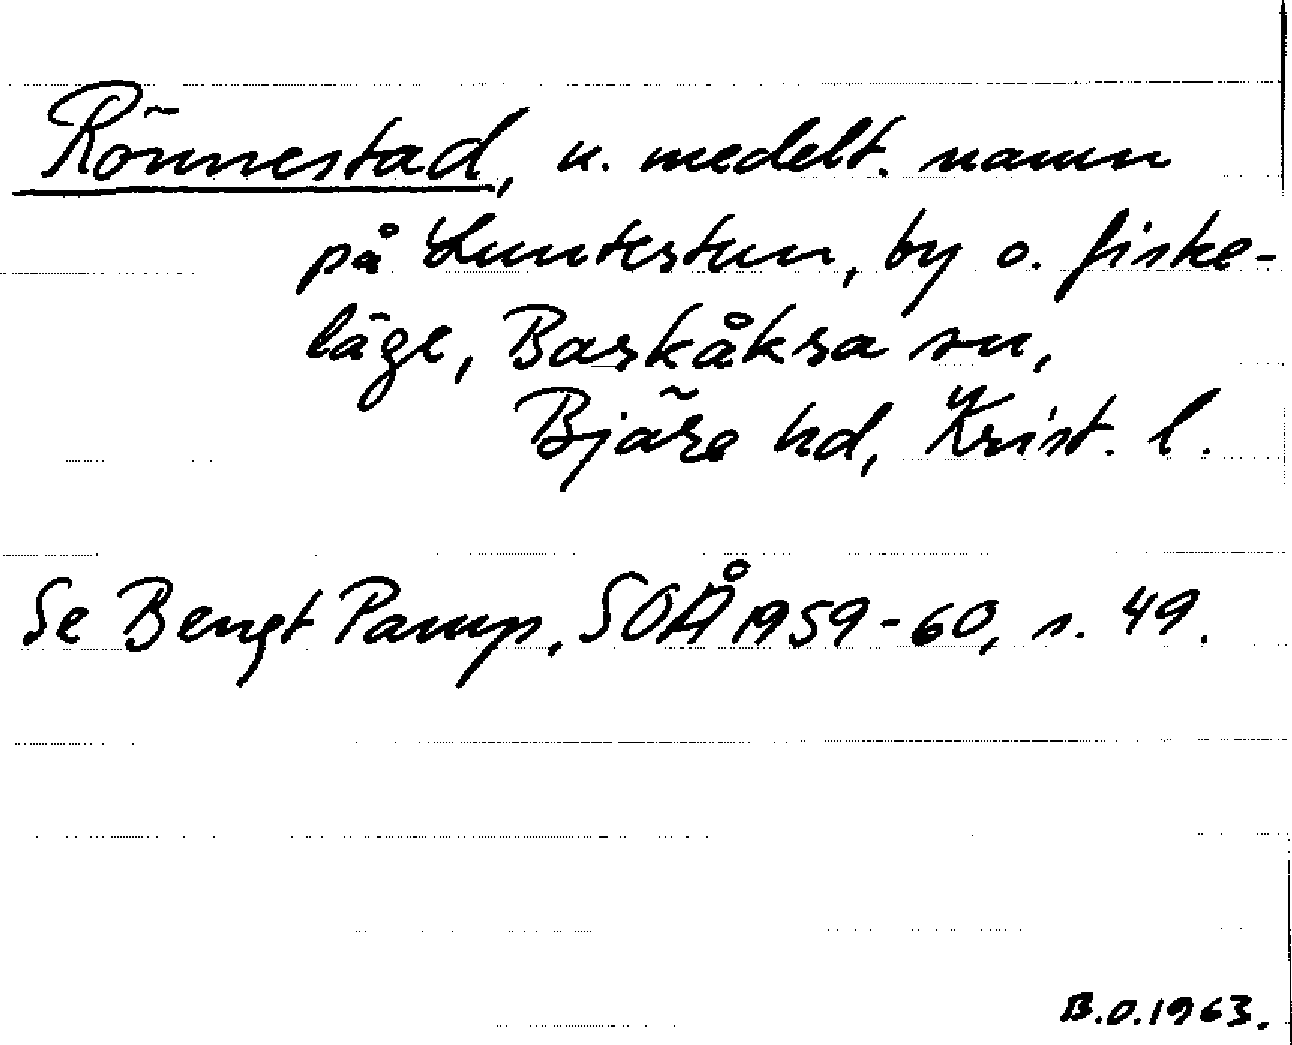 Rönnestad, u. medelt. namn
på Luntertun, by o. fiske-
läge, Baskåksa sn,
Bjäre hd, Krist. l.
Se Bengt Pamp, SOÅ 1959-60, s. 49.
B.O.1963.